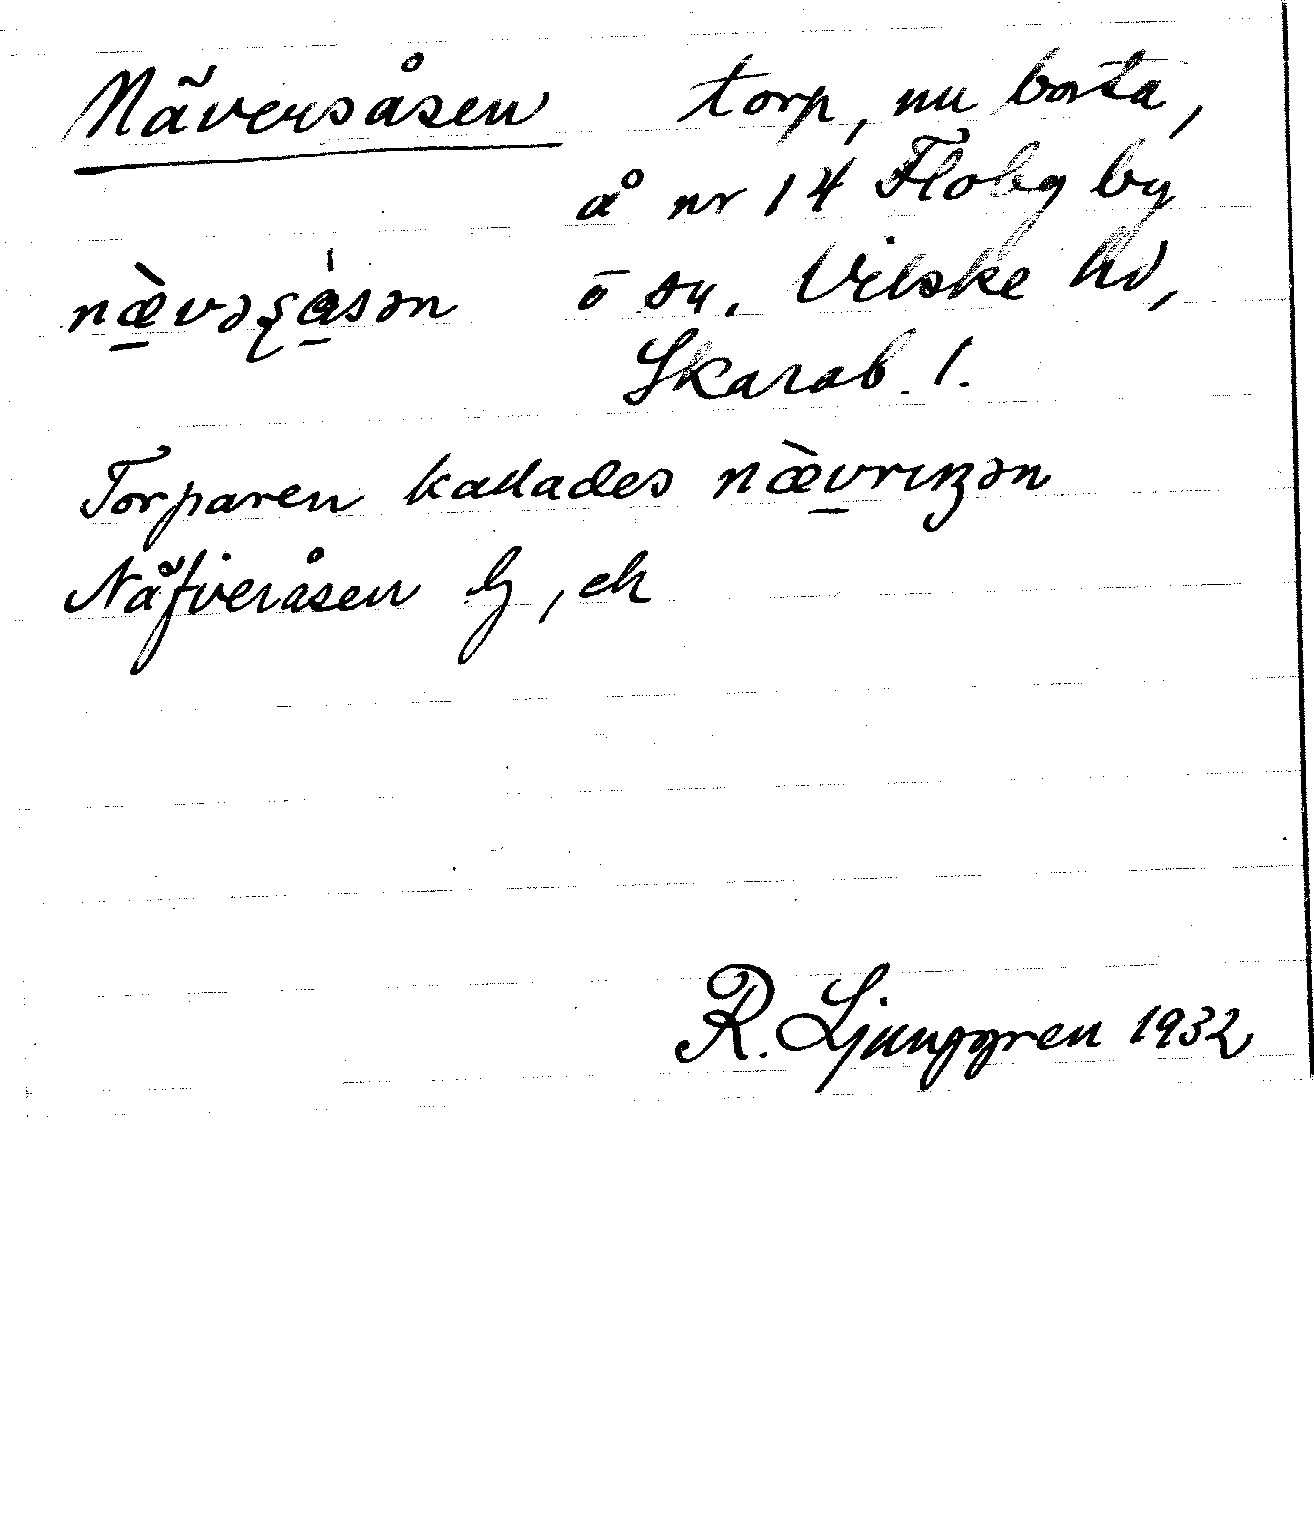 Näversåsen torp, nu borta,
å nr 14 Floby by
næ̀vəʂåsən o sn. Vilske hd,
Skarab. l.
Torparen kallades næ̀vrɪŋən
Näfveråsen
R. Ljunggren 1932